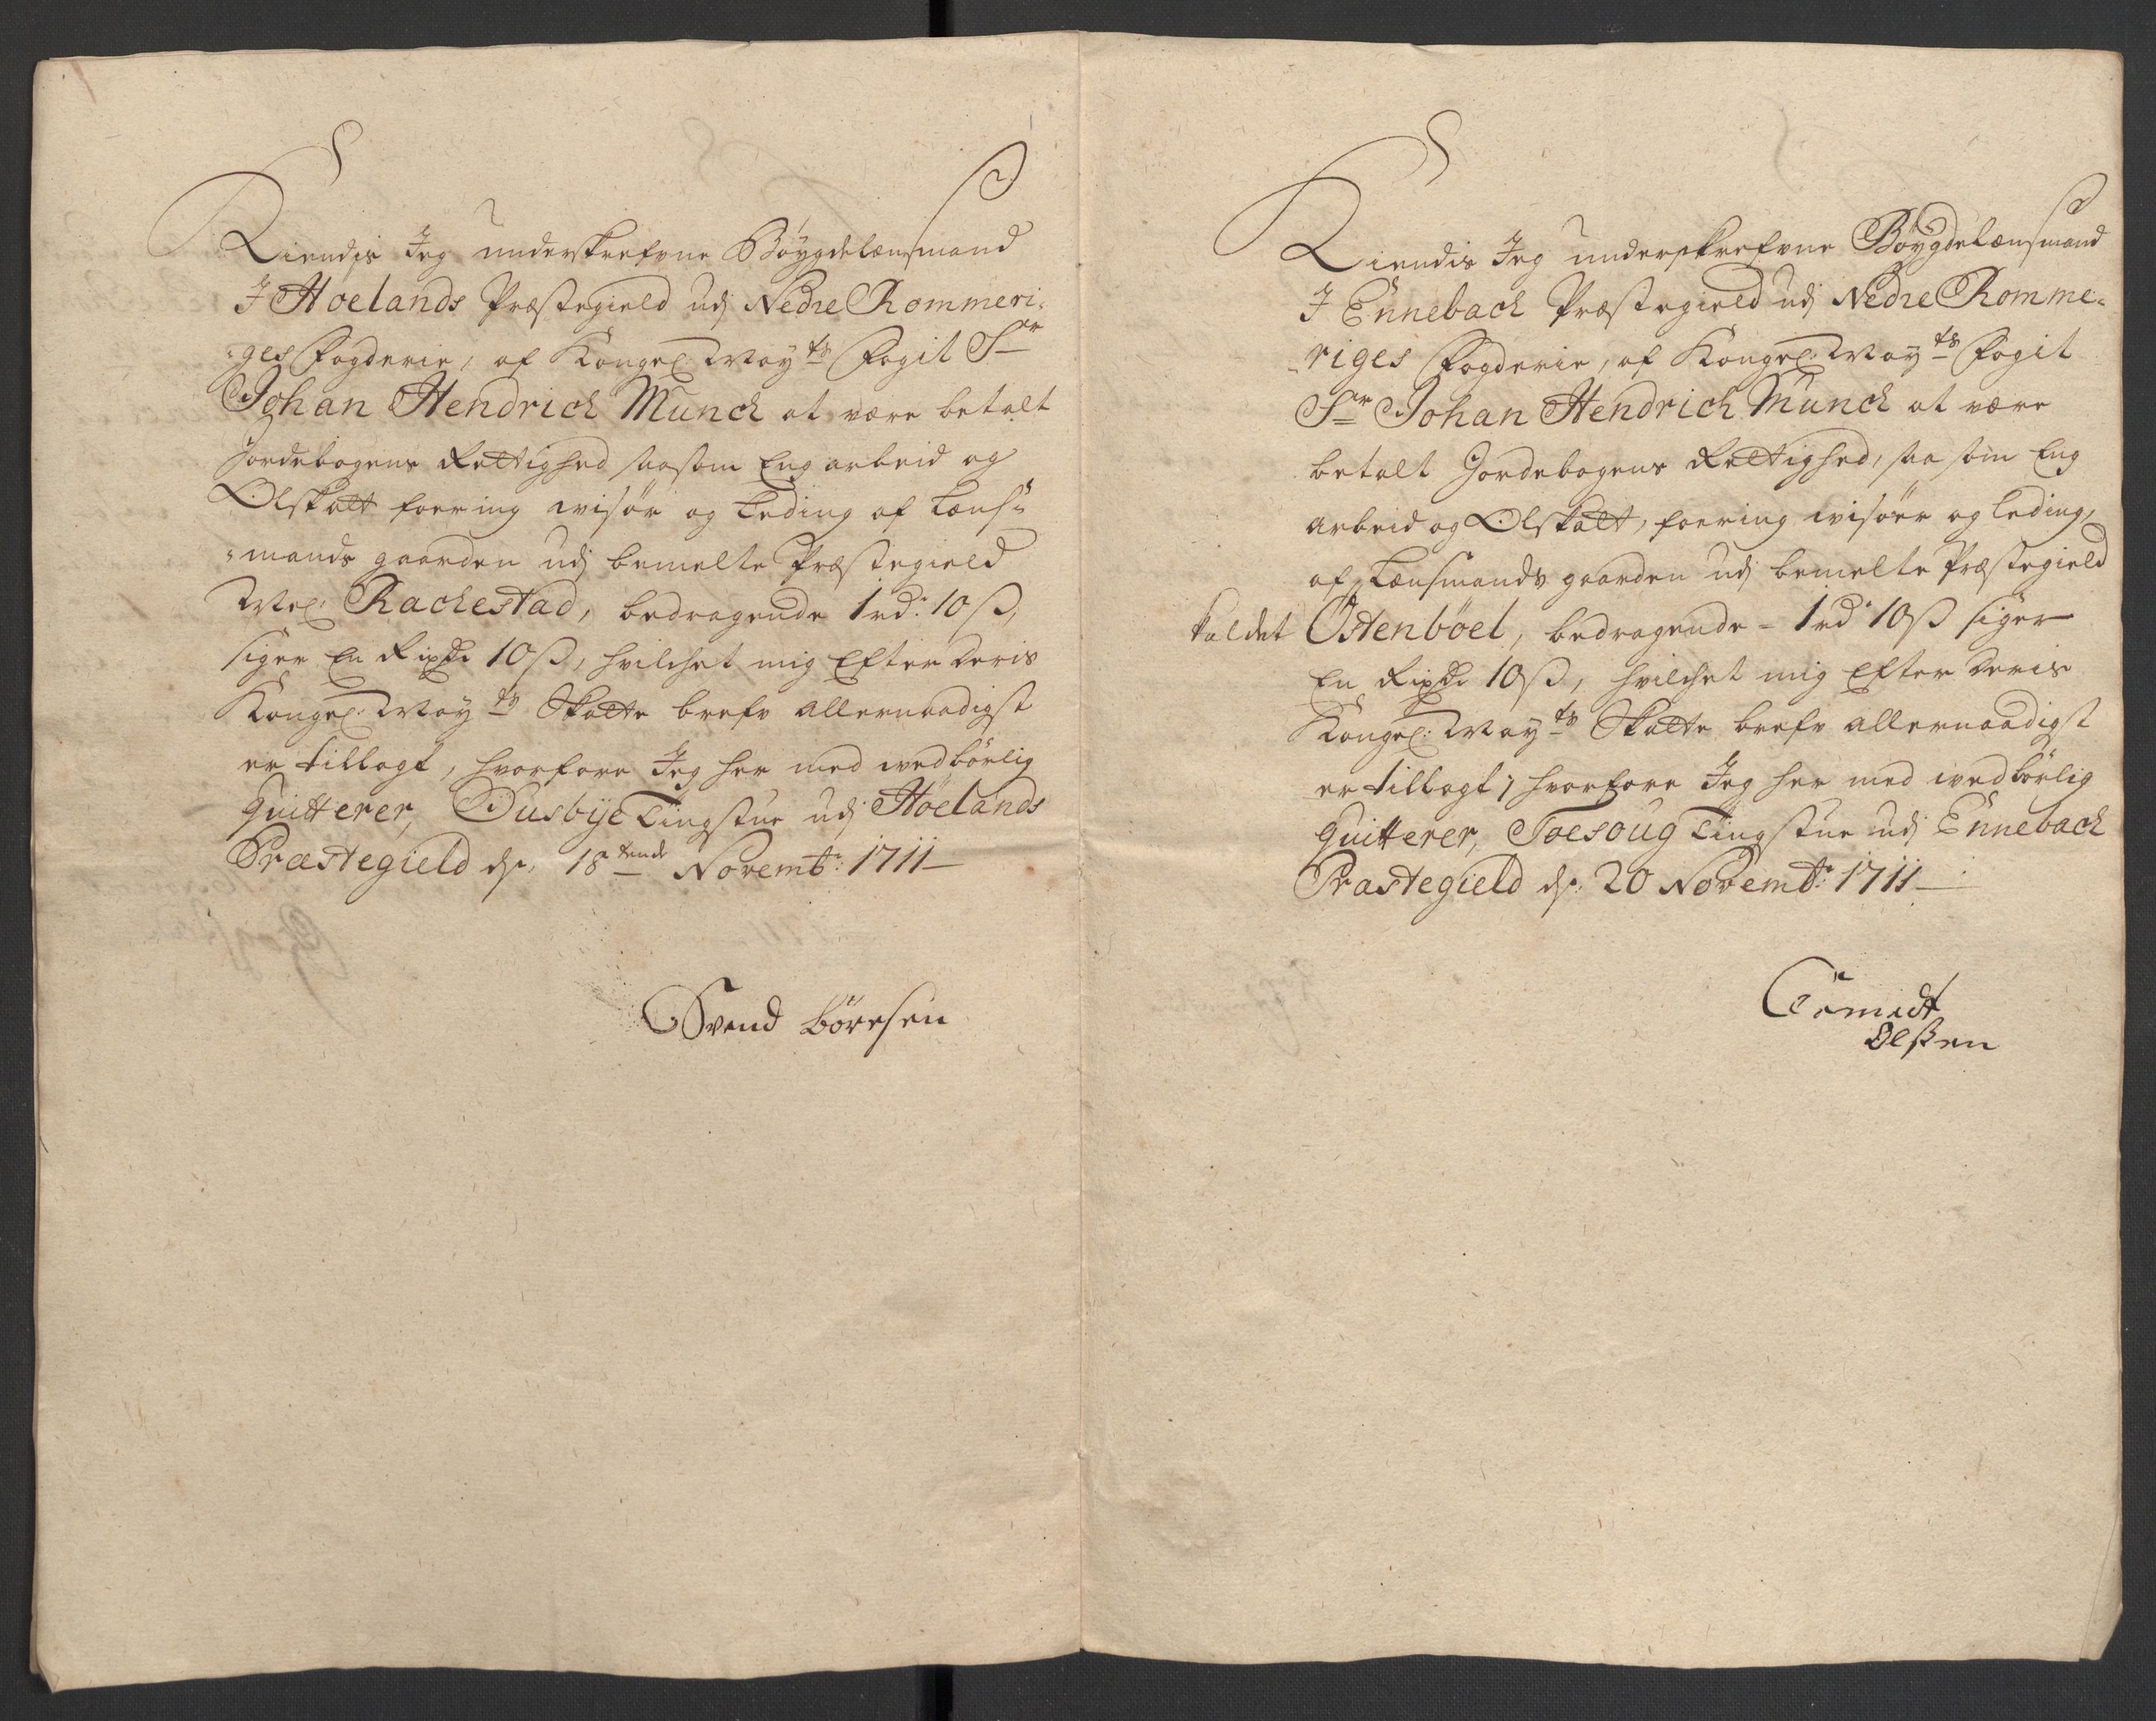 Kiendis Jeg underskrefvne Böygdelænsmand
J Höelands Præstegield udj Nedre Rommeri-
-ges Fogderie, af Kongel: Mayts Fogit Sr
Johan Hendrich Munch at være betalt
Jordebogens Rettighed saasom Eng arbeid og
Olskatt foering wisör og Leding af Lens-
-mands gaarden udj bemelte Præstegield
Nel: Rachestad, bedragende 1 rd: 10 ß,
siger En Rixdr 10 ß, hvilchet mig Efter Deris
Kongel: Mayts Skatte brefv allernaadigst
er tillagt, hvorfore Jeg her med wedbörlig
Quitterer, Dusbye Tingstue udj Höelands
Præstegield dn. 18tende Novembr: 1711
Svend Böresen
Kiendis Jeg underskrefvne Böygdelænsmand
J Ennebach Præstegield udj Nedre Romme-
-riges Fogderie, af Kongel: Mayts Fogit
Sr Johan Hendrich Munch at være
betalt Jordebogens Rettighed, saa som Eng
arbeid og Olskatt, foering wisöer og Leding,
af Lænsmands gaarden udj bemelte Præstegield
kaldet Östenböel, bedragende - 1 rd 10 ß siger
En Rixdr 10 ß, hvilchet mig Efter Deris
Kongel: Mayts Skatte brefv allernaadigst
er tillagt, hvorfore Jeg her med wedbörlig
Quitterer, Toesoug Tingstue udj Ennebach
Præstegield dn. 20 Novembr: 1711
Olßen